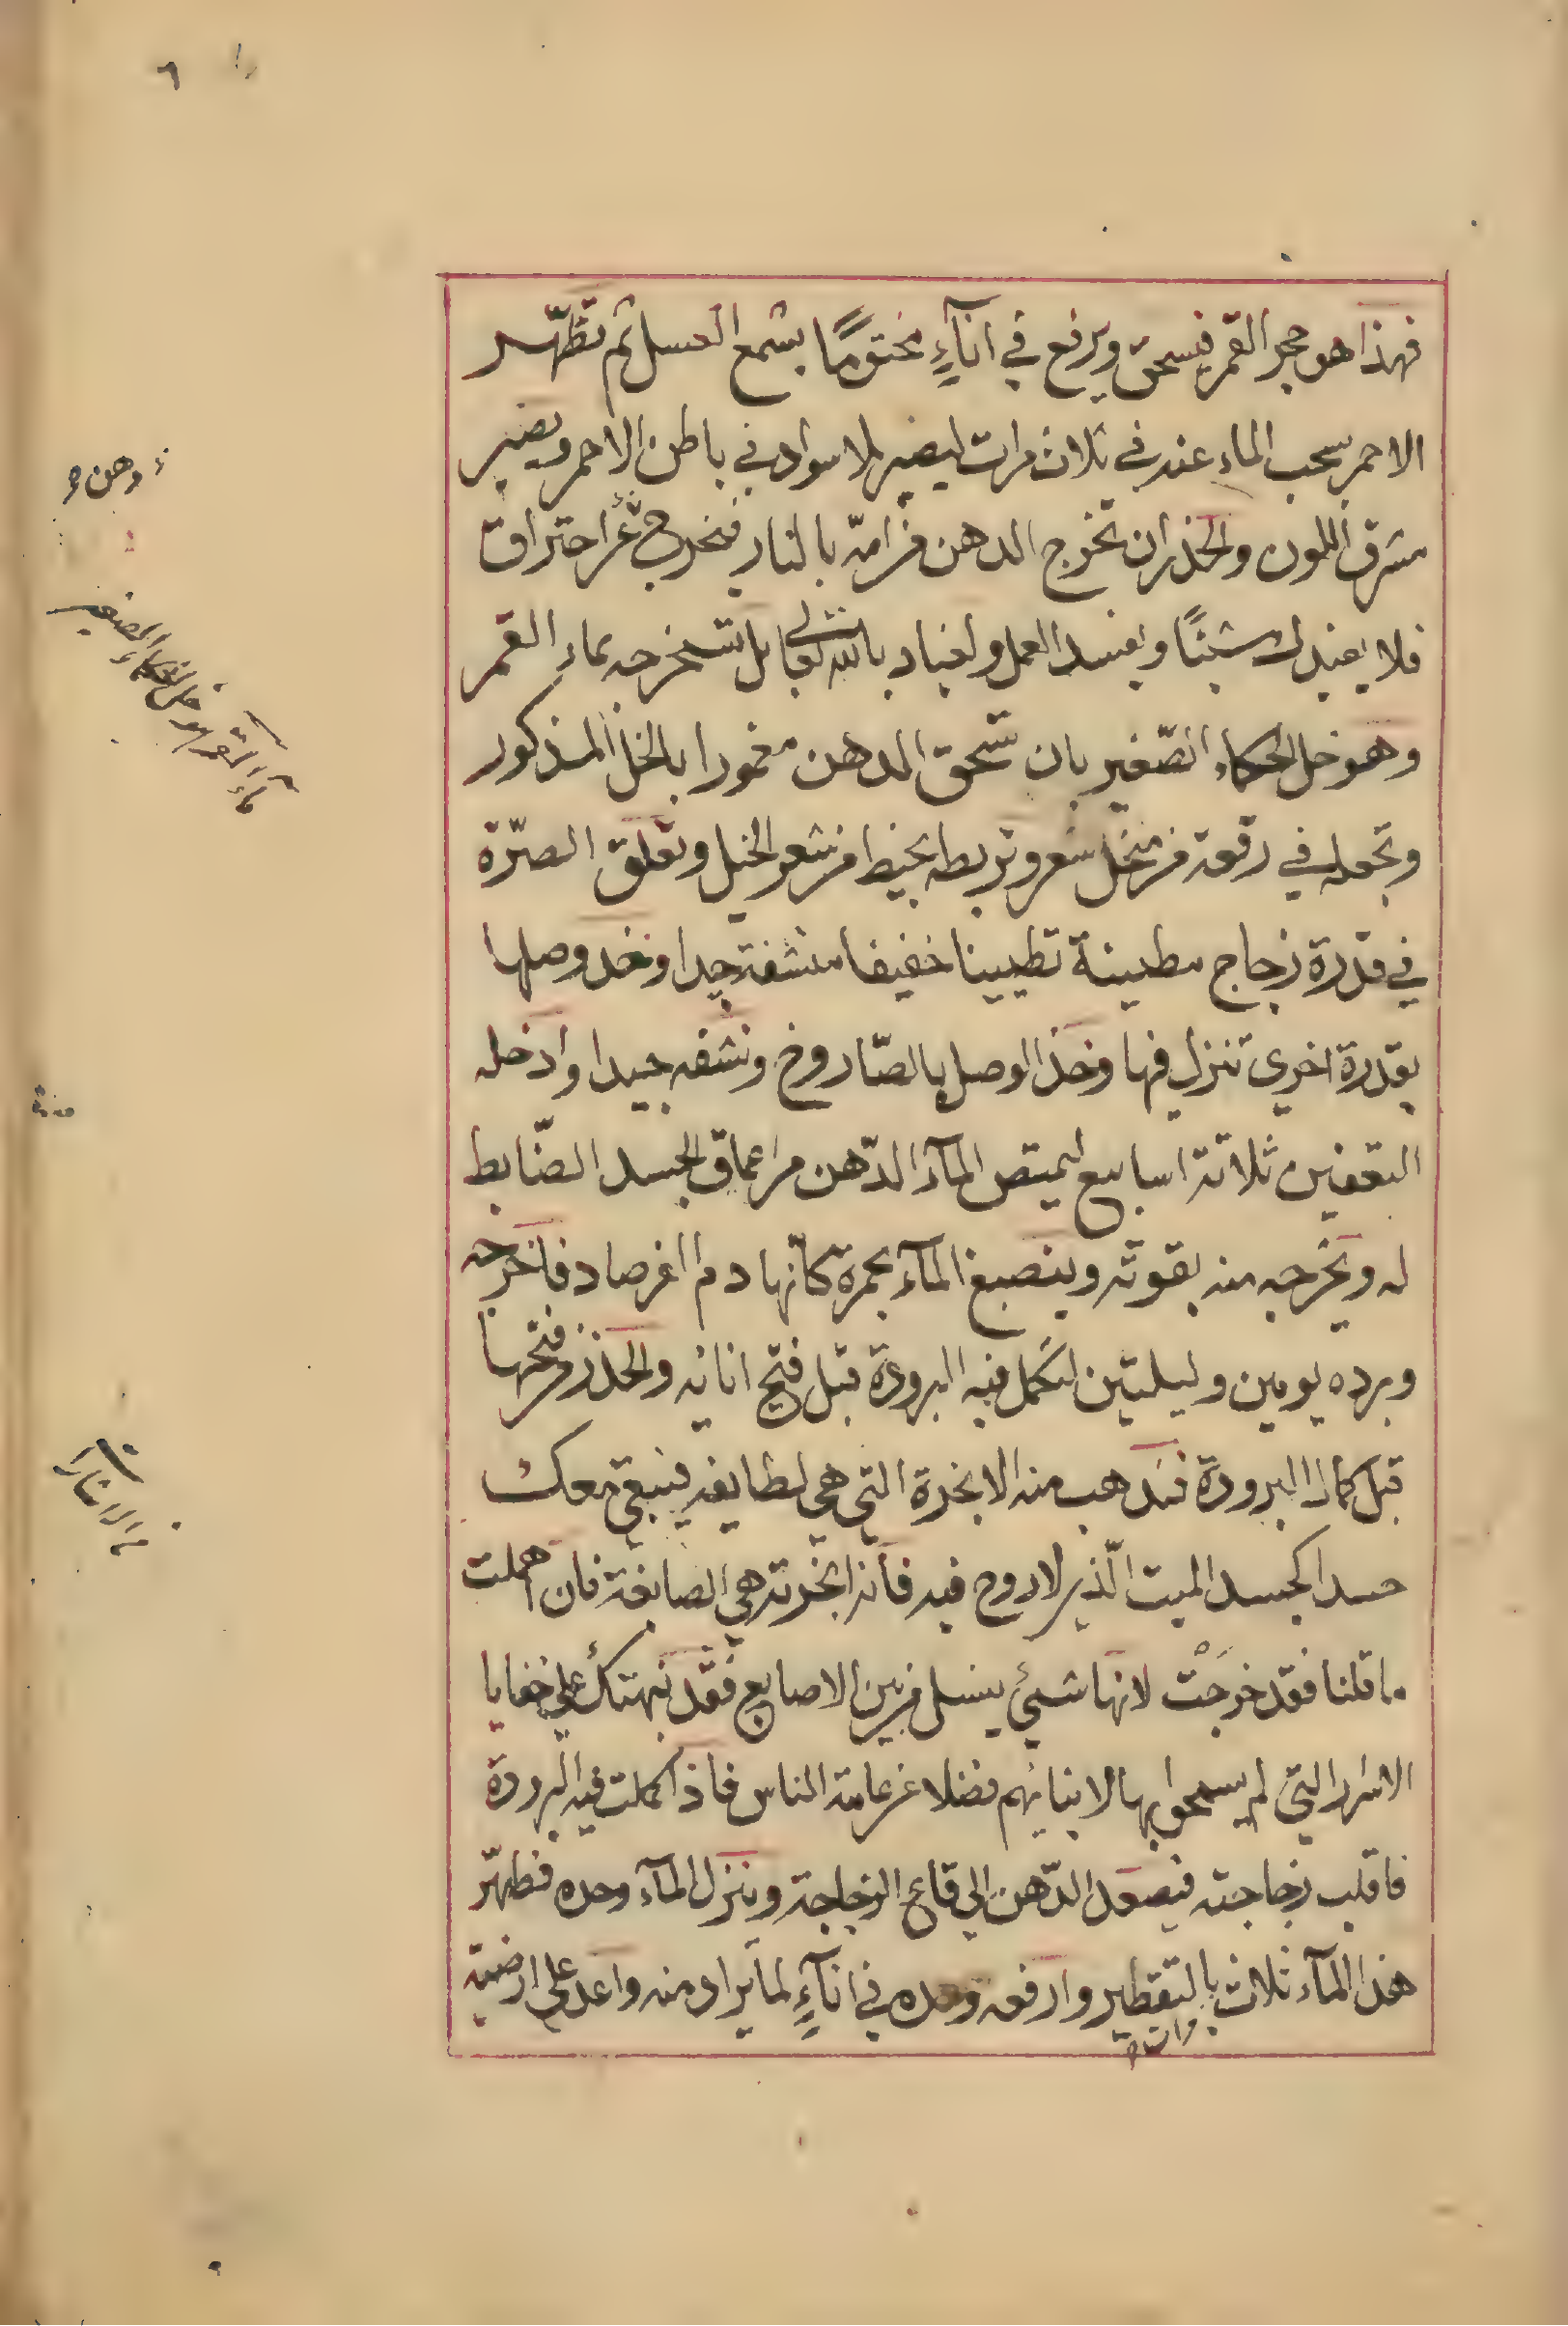 ٦
فهذا هو حجر القمر فيسحق ويرفع في انآءٍ مختومًا بشمع العسل ثم تطهّر
الاحمر بسحب الماء عنه في ثلاث مرات ليصير لا سواد في باطن الاحمر ويصير
مشرق اللون والحذر ان تخرج الدهن من امّه بالنار فيخرج احتراق
فلا يفيدك شيئًا ويفسد العمل والعياذ بالله تعالى بل تستخرجه بماء القمر
وهو خل الحكماء الصّغير بان تسحق الدهن مغمورا بالخل المذكور
وتجعله في رقعة من منخل شعر وتربطه بخيط من شعر الخيل وتعلق الصرّة
في قدرة زجاج مطينة تطيينا خفيفا منشفة جيدا وخذ وصلها
بقدرة اخرى تنزل فيها وخذ الوصل بالصّاروخ ونشفه جيدا وادخله
التعفين ثلاثة اسابيع ليمتص المآء الدّهن من اعماق الجسد الضّابط
له ويخرجه منه بقوته وينصبغ المآء بحمرة كأنها دم الفرصاد فاخرجه
وبرده يومين وليلتين لتكمل فيه البرودة قبل فتح انائه والحذر من فتحها
قبل كمال البرودة فتذهب منه الابخرة التي هي لطايفه فيبقى معك
جسد الجسد الميت الّذي لا روح فيه فأن ابخرته هي الصابغة فان اهملت
ما قلنا فقد خرجَتْ لانها شيئ ينسل من بين الاصابع فقد نبهتك على خفايا
الاسرار التي لم يسمحوا بها لابنايهم فضلا عن عامة الناس فاذا كملت فيه البرودة
فاقلب زجاجته فيصعد الدّهن الى قاع الزجاجة وينزل المآء وحده فطهّر
هذا المآء ثلاث مرات بالتقطير وارفعه وحده في انآءٍ لما يراد منه واعد على ارضيته
مآء القمر هو خل الحكماء الصغير